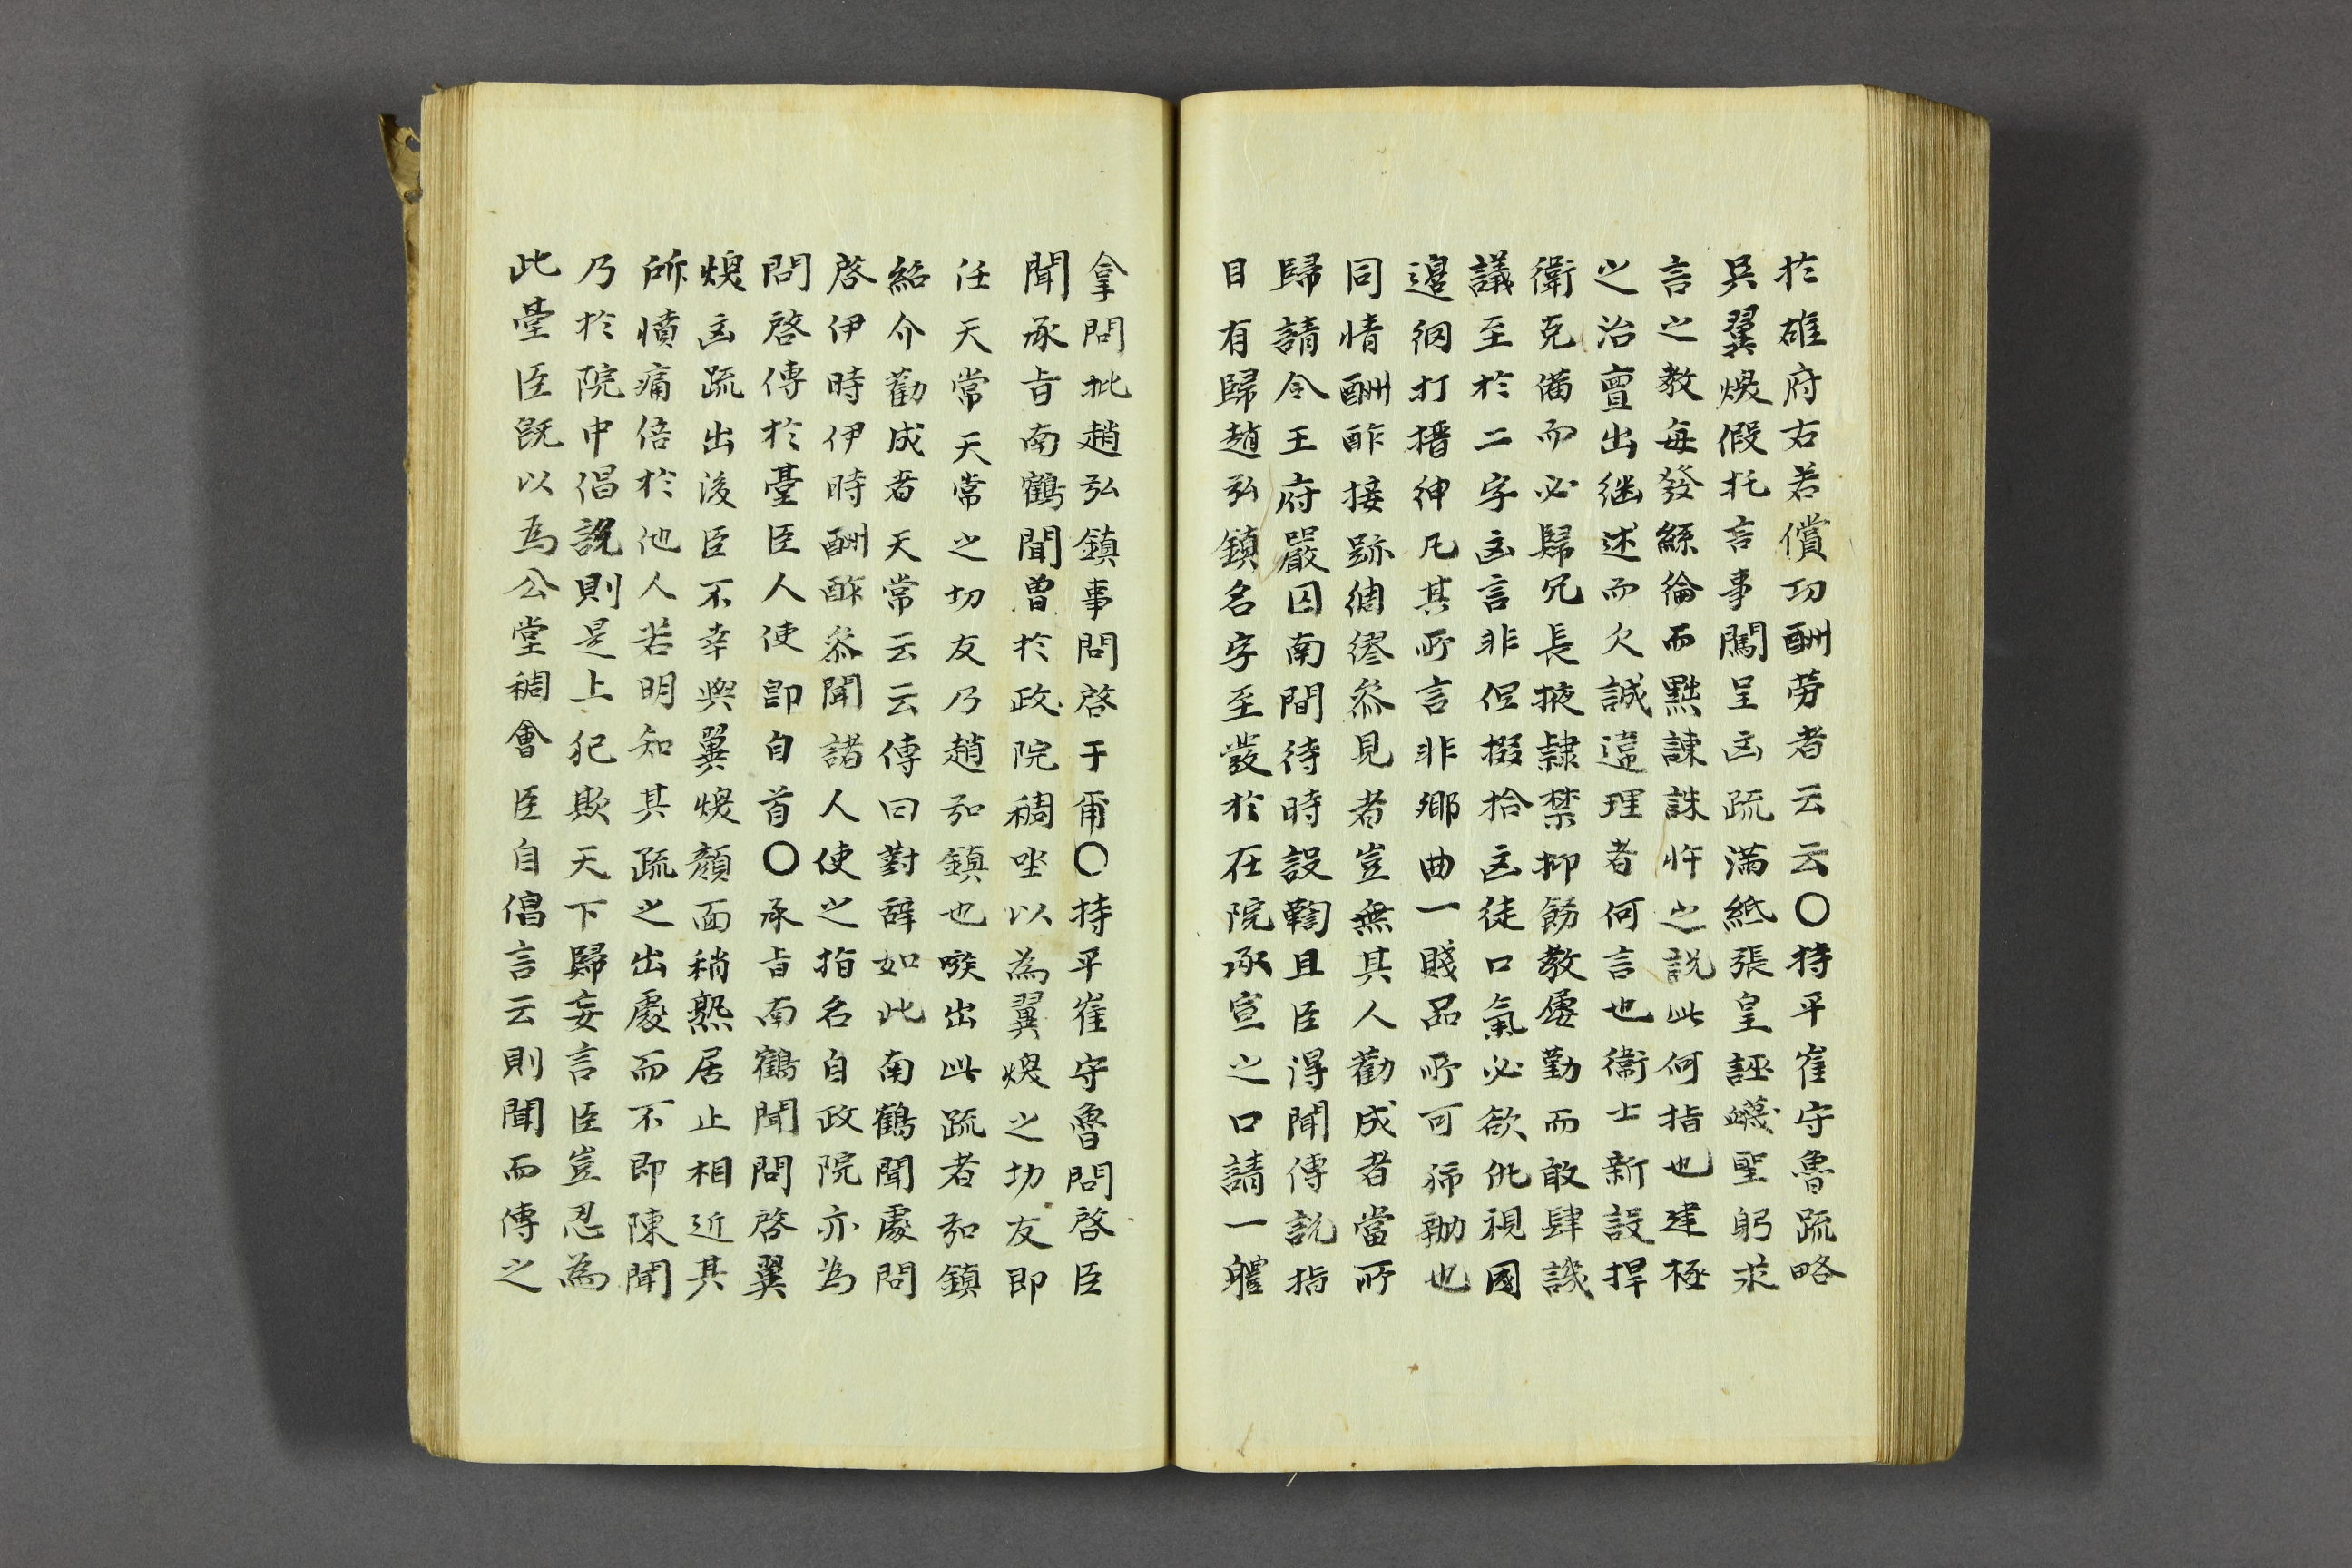 於雄府右若償功酬劳者云云〇持平崔守魯疏略
吳翼煥假托言事闖呈凶疏滿紙張皇誣衊聖躬求
言之教每發絲綸而黜諫誅忤之說此何指也建極
之治亶出継述而欠誠違理者何言也衛士新設捍
衛克備而必歸兄長掖隷禁抑飭教屡勤而敢肆譏
議至於二字凶言非但掇拾凶徒口氣必欲仇視國
邊徊打搢紳凡其所言非鄉曲一賤品所可獨勦也
同情酬酢接跡綢繆叅見者豈無其人勸成者當所
歸請令王府嚴囚南間待時設鞫且臣得聞傳説指
目有歸趙弘鎮名字至發於在院承宣之口請一軆
拿問批趙弘鎮事問啓于爾〇持平崔守魯問啓臣
聞承旨南鶴聞曽於政院稠坐以為翼煥之切友即
任天常天常之切友乃趙弘鎮也嗾出此疏者弘鎮
紹介勸成者天常云云傳曰對辞如此南鶴聞處問
啓伊時伊時酬酢叅聞諸人使之指名自政院亦為
問啓傳於臺臣人使卽自首〇承旨南鶴聞問啓翼
煥凶疏出後臣不幸與翼煥顔面稍熟居止相近其
所憤痛倍於他人若明知其疏之出處而不即陳聞
乃於院中倡說則是上犯欺天下歸妄言臣豈忍為
此臺臣旣以為公堂稠會臣自倡言云則聞而傳之